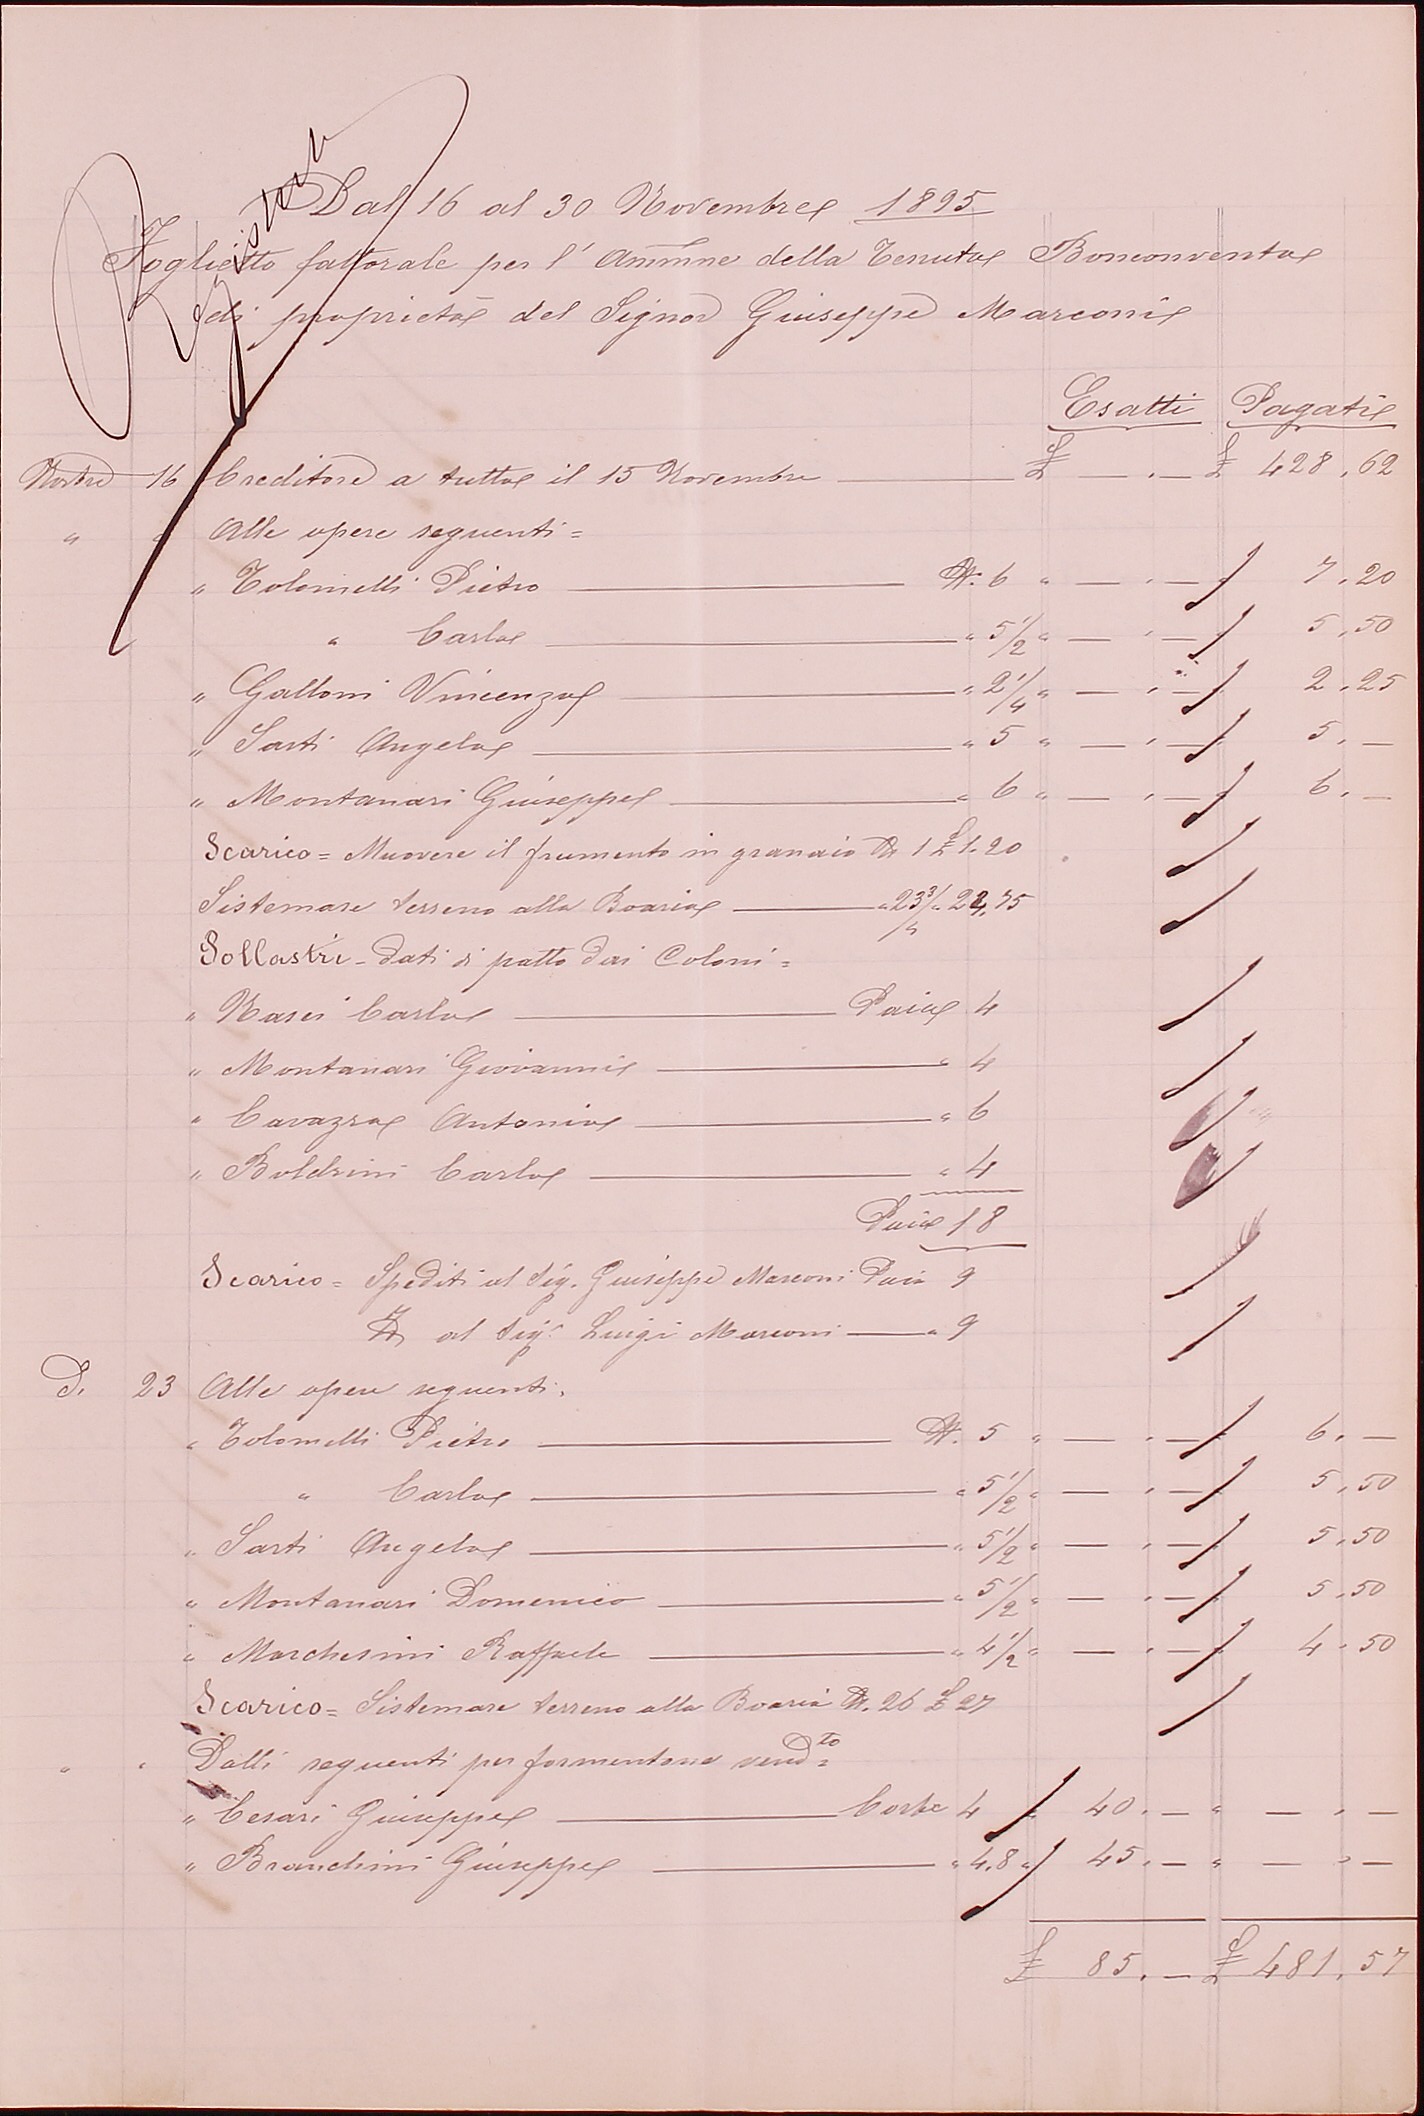 Dal 16 al 30 Novembre 1895
Foglietto fattorale per l'Ammne della Tenuta Bonconvento
di proprietà del Signor Giuseppe Marconi
Esatti Pagati
Novbre 16 Creditore a tutto il 15 Novembre £ — . — £ 428 . 62
" " Alle opere seguenti =
" Tolomelli Pietro N. 6 " — . — " 7 . 20
" Carlo " 5 1/2 " — . — " 5 . 50
" Galloni Vincenzo " 2 1/4 " — . — " 2 . 25
" Sarti Angelo " 5 " — . — " 5 . —
" Montanari Giuseppe " 6 " — . — " 6 . —
Scarico = Muovere il frumento in granaio N. 1 £ 1.20
Sistemare terreno alla Boaria " 23 3/4 " 24,75
Pollastri - dati di patto dai Coloni =
" Carlo Paia 4
" Montanari Giovanni " 4
" Cavazza Antonio " 6
" Boldrini Carlo " 4
Paia 18
Scarico = Spediti al Sig. Giuseppe Marconi Paia 9
al Sigr Luigi Marconi " 9
D. 23 Alle opere seguenti.
" Tolomelli Pietro N. 5 " — . — " 6 . —
" Carlo " 5 1/2 " — . — " 5 . 50
" Sarti Angelo " 5 1/2 " — . — " 5 . 50
" Montanari Domenico " 5 1/2 " — . — " 5 . 50
" Marchesini Raffaele " 4 1/2 " — . — " 4 . 50
Scarico = Sistemare terreno alla Boaria N. 26 £ 27
" " Dalli seguenti per formentone vendto =
" Cesari Giuseppe Corbe 4 " 40 . — " — . —
" Branchini Giuseppe " 4.8 " 45 . — " — . —
£ 85 . — £ 481 . 57